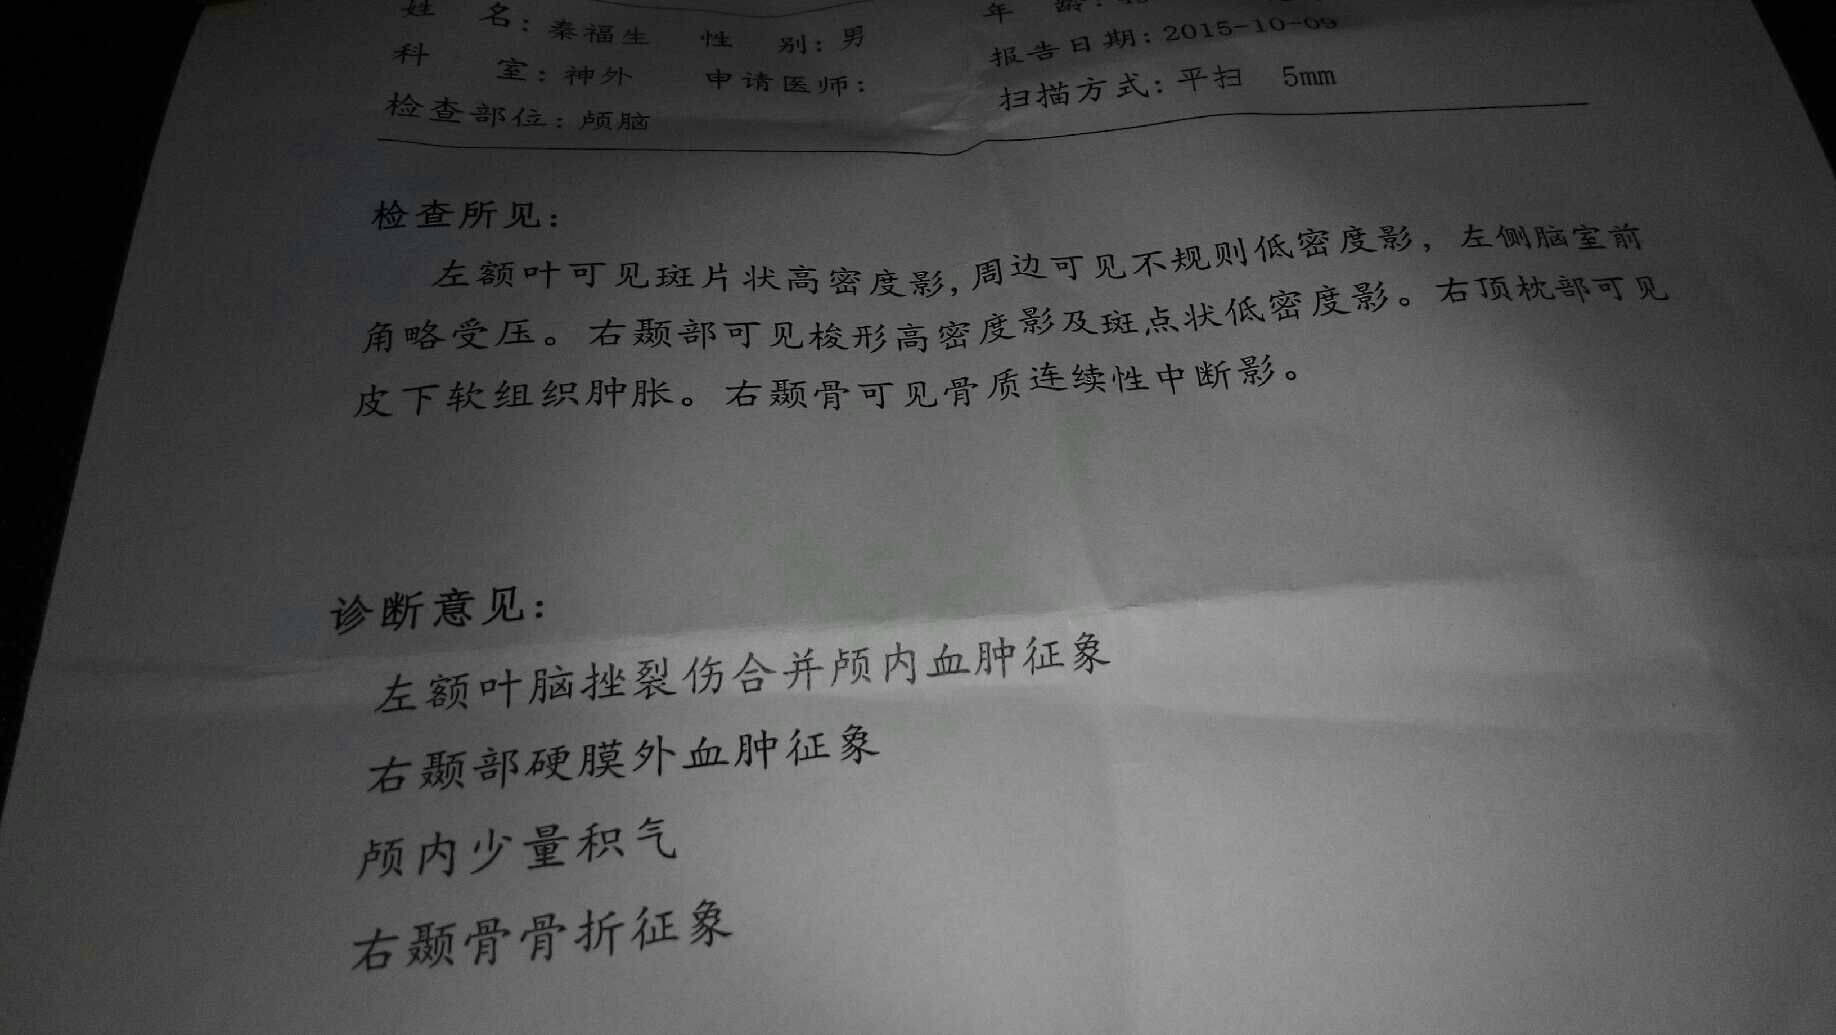 姓 名：秦福生 性 别：男 年 龄：
科 室：神外 申请医师： 报告日期：2015-10-09
检查部位：颅脑 扫描方式：平扫 5mm
检查所见：
左额叶可见斑片状高密度影，周边可见不规则低密度影，左侧脑室前
角略受压。右颞部可见梭形高密度影及斑点状低密度影。右顶枕部可见
皮下软组织肿胀。右颞骨可见骨质连续性中断影。
诊断意见：
左额叶脑挫裂伤合并颅内血肿征象
右颞部硬膜外血肿征象
颅内少量积气
右颞骨骨折征象